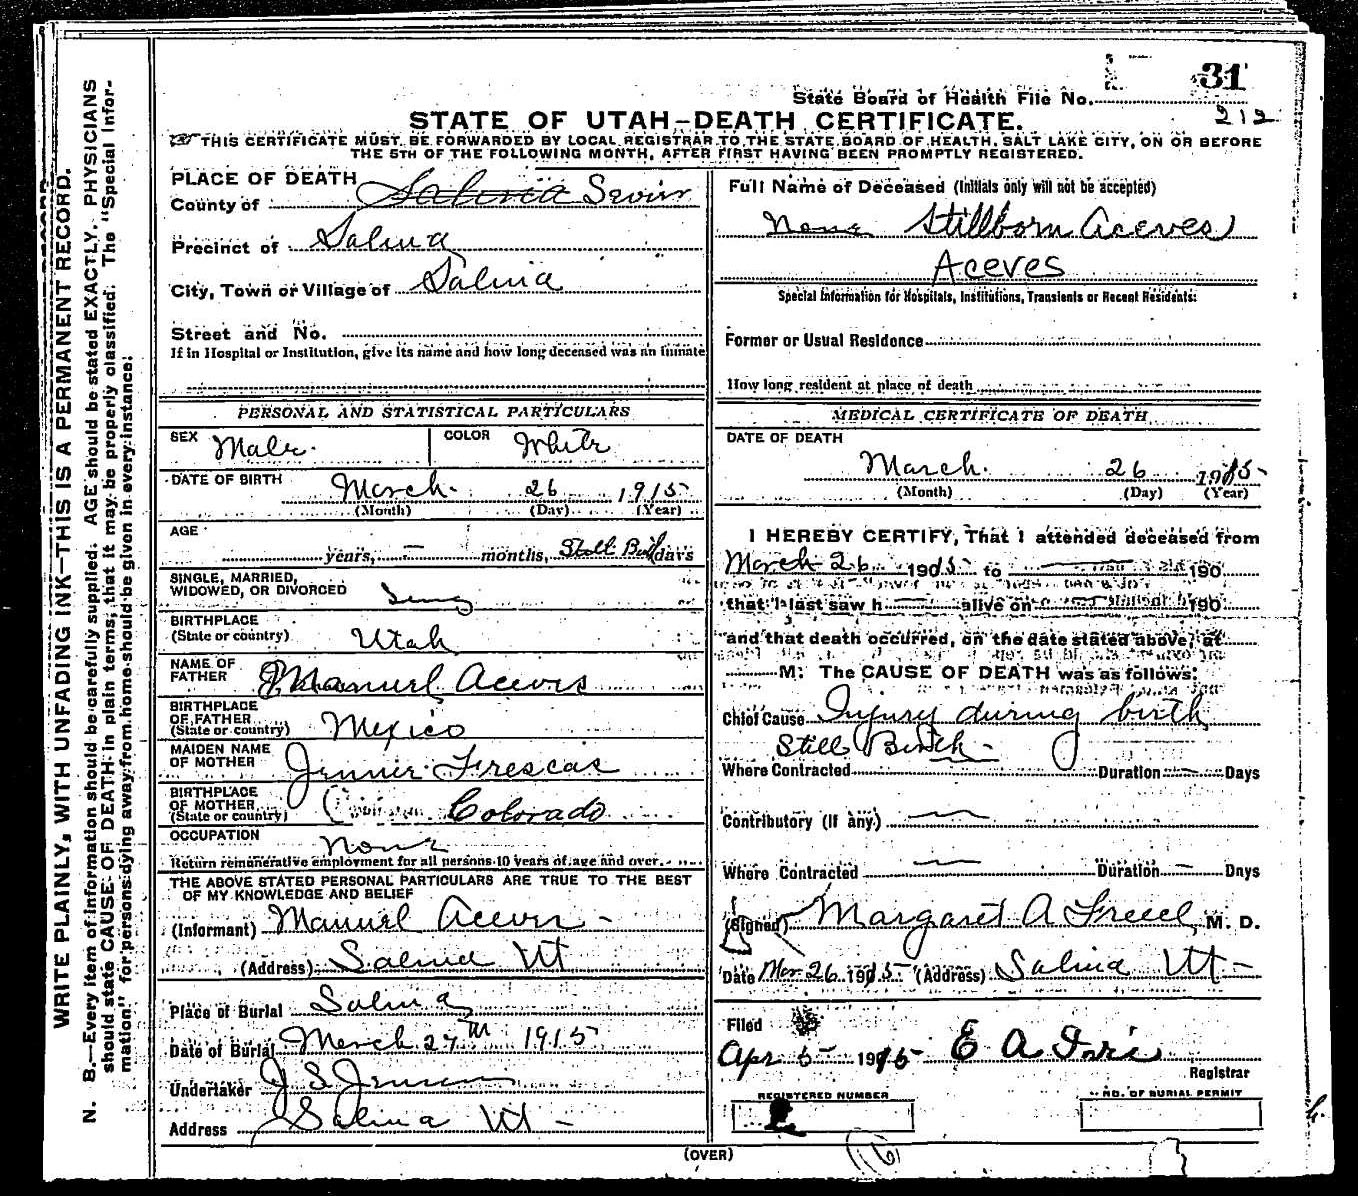 31
State Board of Health File No.
212
STATE OF UTAH—DEATH CERTIFICATE.
THIS CERTIFICATE MUST BE FORWARDED BY LOCAL REGISTRAR TO THE STATE BOARD OF HEALTH, SALT LAKE CITY, ON OR BEFORE
THE 5TH OF THE FOLLOWING MONTH, AFTER FIRST HAVING BEEN PROMPTLY REGISTERED.
WRITE PLAINLY, WITH UNFADING INK—THIS IS A PERMANENT RECORD.
N. B.—Every item of information should be carefully supplied. AGE should be stated EXACTLY. PHYSICIANS
should state CAUSE OF DEATH in plain terms, that it may be properly classified. The "Special Infor-
mation" for persons dying away from home should be given in every instance.
PLACE OF DEATH
County of Salina Sevier
Precinct of Salina
City, Town or Village of Salina
Street and No.
If in Hospital or Institution, give its name and how long deceased was an inmate
PERSONAL AND STATISTICAL PARTICULARS
SEX Male. COLOR White
DATE OF BIRTH March. 26 1915
(Month) (Day) (Year)
AGE
years, — months, Still Birth days
SINGLE, MARRIED,
WIDOWED, OR DIVORCED
BIRTHPLACE
(State or country) Utah
NAME OF
FATHER Manuel Aceves
BIRTHPLACE
OF FATHER
(State or country) Mexico
MAIDEN NAME
OF MOTHER Jennie Frescas
BIRTHPLACE
OF MOTHER
(State or country) Colorado
OCCUPATION None
Return remunerative employment for all persons 10 years of age and over.
THE ABOVE STATED PERSONAL PARTICULARS ARE TRUE TO THE BEST
OF MY KNOWLEDGE AND BELIEF
(Informant) Manuel Aceves
(Address) Salina Ut
Place of Burial Salina
Date of Burial March 27th 1915
Undertaker J. S. Jensen
Address Salina Ut
Full Name of Deceased (Initials only will not be accepted)
None Stillborn Aceves
Aceves
Special Information for Hospitals, Institutions, Transients or Recent Residents:
Former or Usual Residence
How long resident at place of death
MEDICAL CERTIFICATE OF DEATH
DATE OF DEATH
March. 26 1915
(Month) (Day) (Year)
I HEREBY CERTIFY, That I attended deceased from
March 26 1915 to — 190
that I last saw h — alive on 190
and that death occurred, on the date stated above, at
M. The CAUSE OF DEATH was as follows:
Chief Cause Injury during birth
Still Birth -
Where Contracted Duration — Days
Contributory (if any) —
Where Contracted — Duration — Days
(Signed) Margaret A Freece, M. D.
Date Mar 26 1915 (Address) Salina Ut -
Filed
Apr 5 1915 E A
Registrar
REGISTERED NUMBER NO. OF BURIAL PERMIT
(OVER)